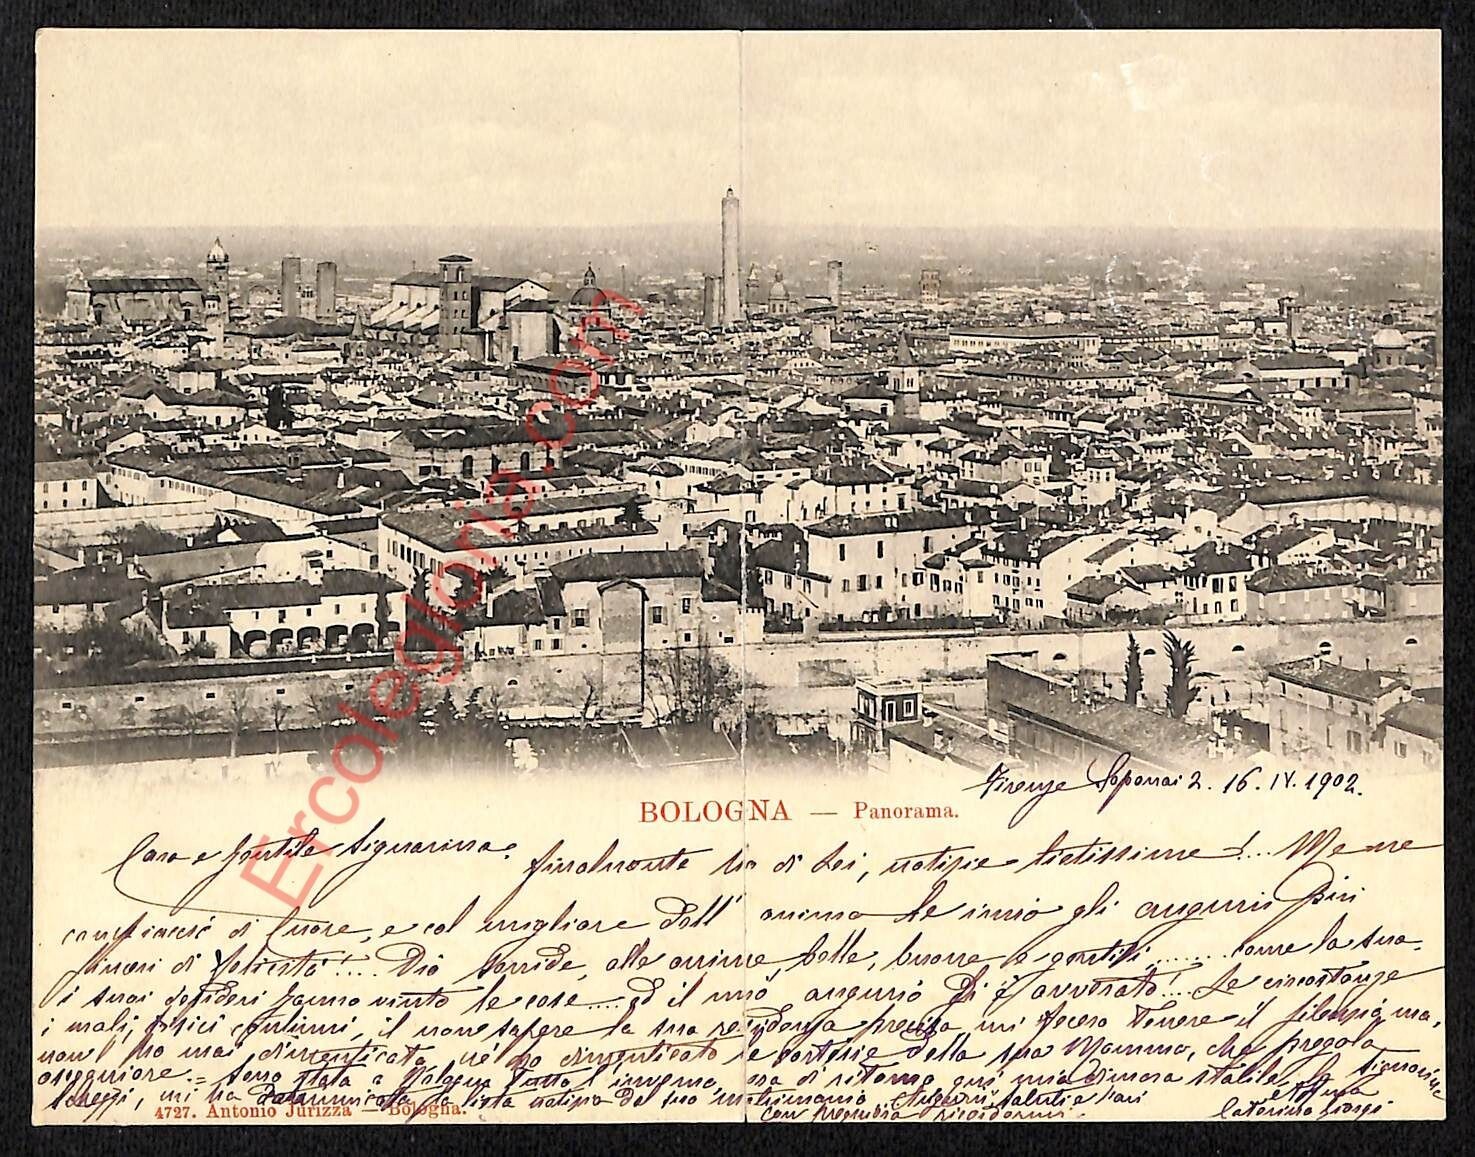 Ercolegloria.com
Firenze 2. 16. IV. 1902.
BOLOGNA — Panorama.
Cara e gentile Signorina.
finalmente ho di Lei, notizie lietissime!... Me ne
di Cuore, e col migliore dell' anima Le invio gli augurii Più
sinceri di felicità!.... Dio sorride, alle anime, belle, buone e gentili,........come la sua.
i suoi desideri hanno vinto le cose.... ed il mio augurio si è avverato!... Le circostanze
i mali, fisici continui, il non sapere la sua residenza precisa, mi fecero tenere il silenzio, ma,
non l'ho mai dimenticata, nè ho dimenticato le cortesie della sua Mamma, che pregola
ossequiare. = Sono stata a Bologna tutto l'inverno, ora di ritorno qui mia dimora stabile, la Signorina
mi ha comunicata la lieta notizia del suo matrimonio Auguri, saluti e baci
4727. Antonio Jurizza — Bologna.
con
Caterina